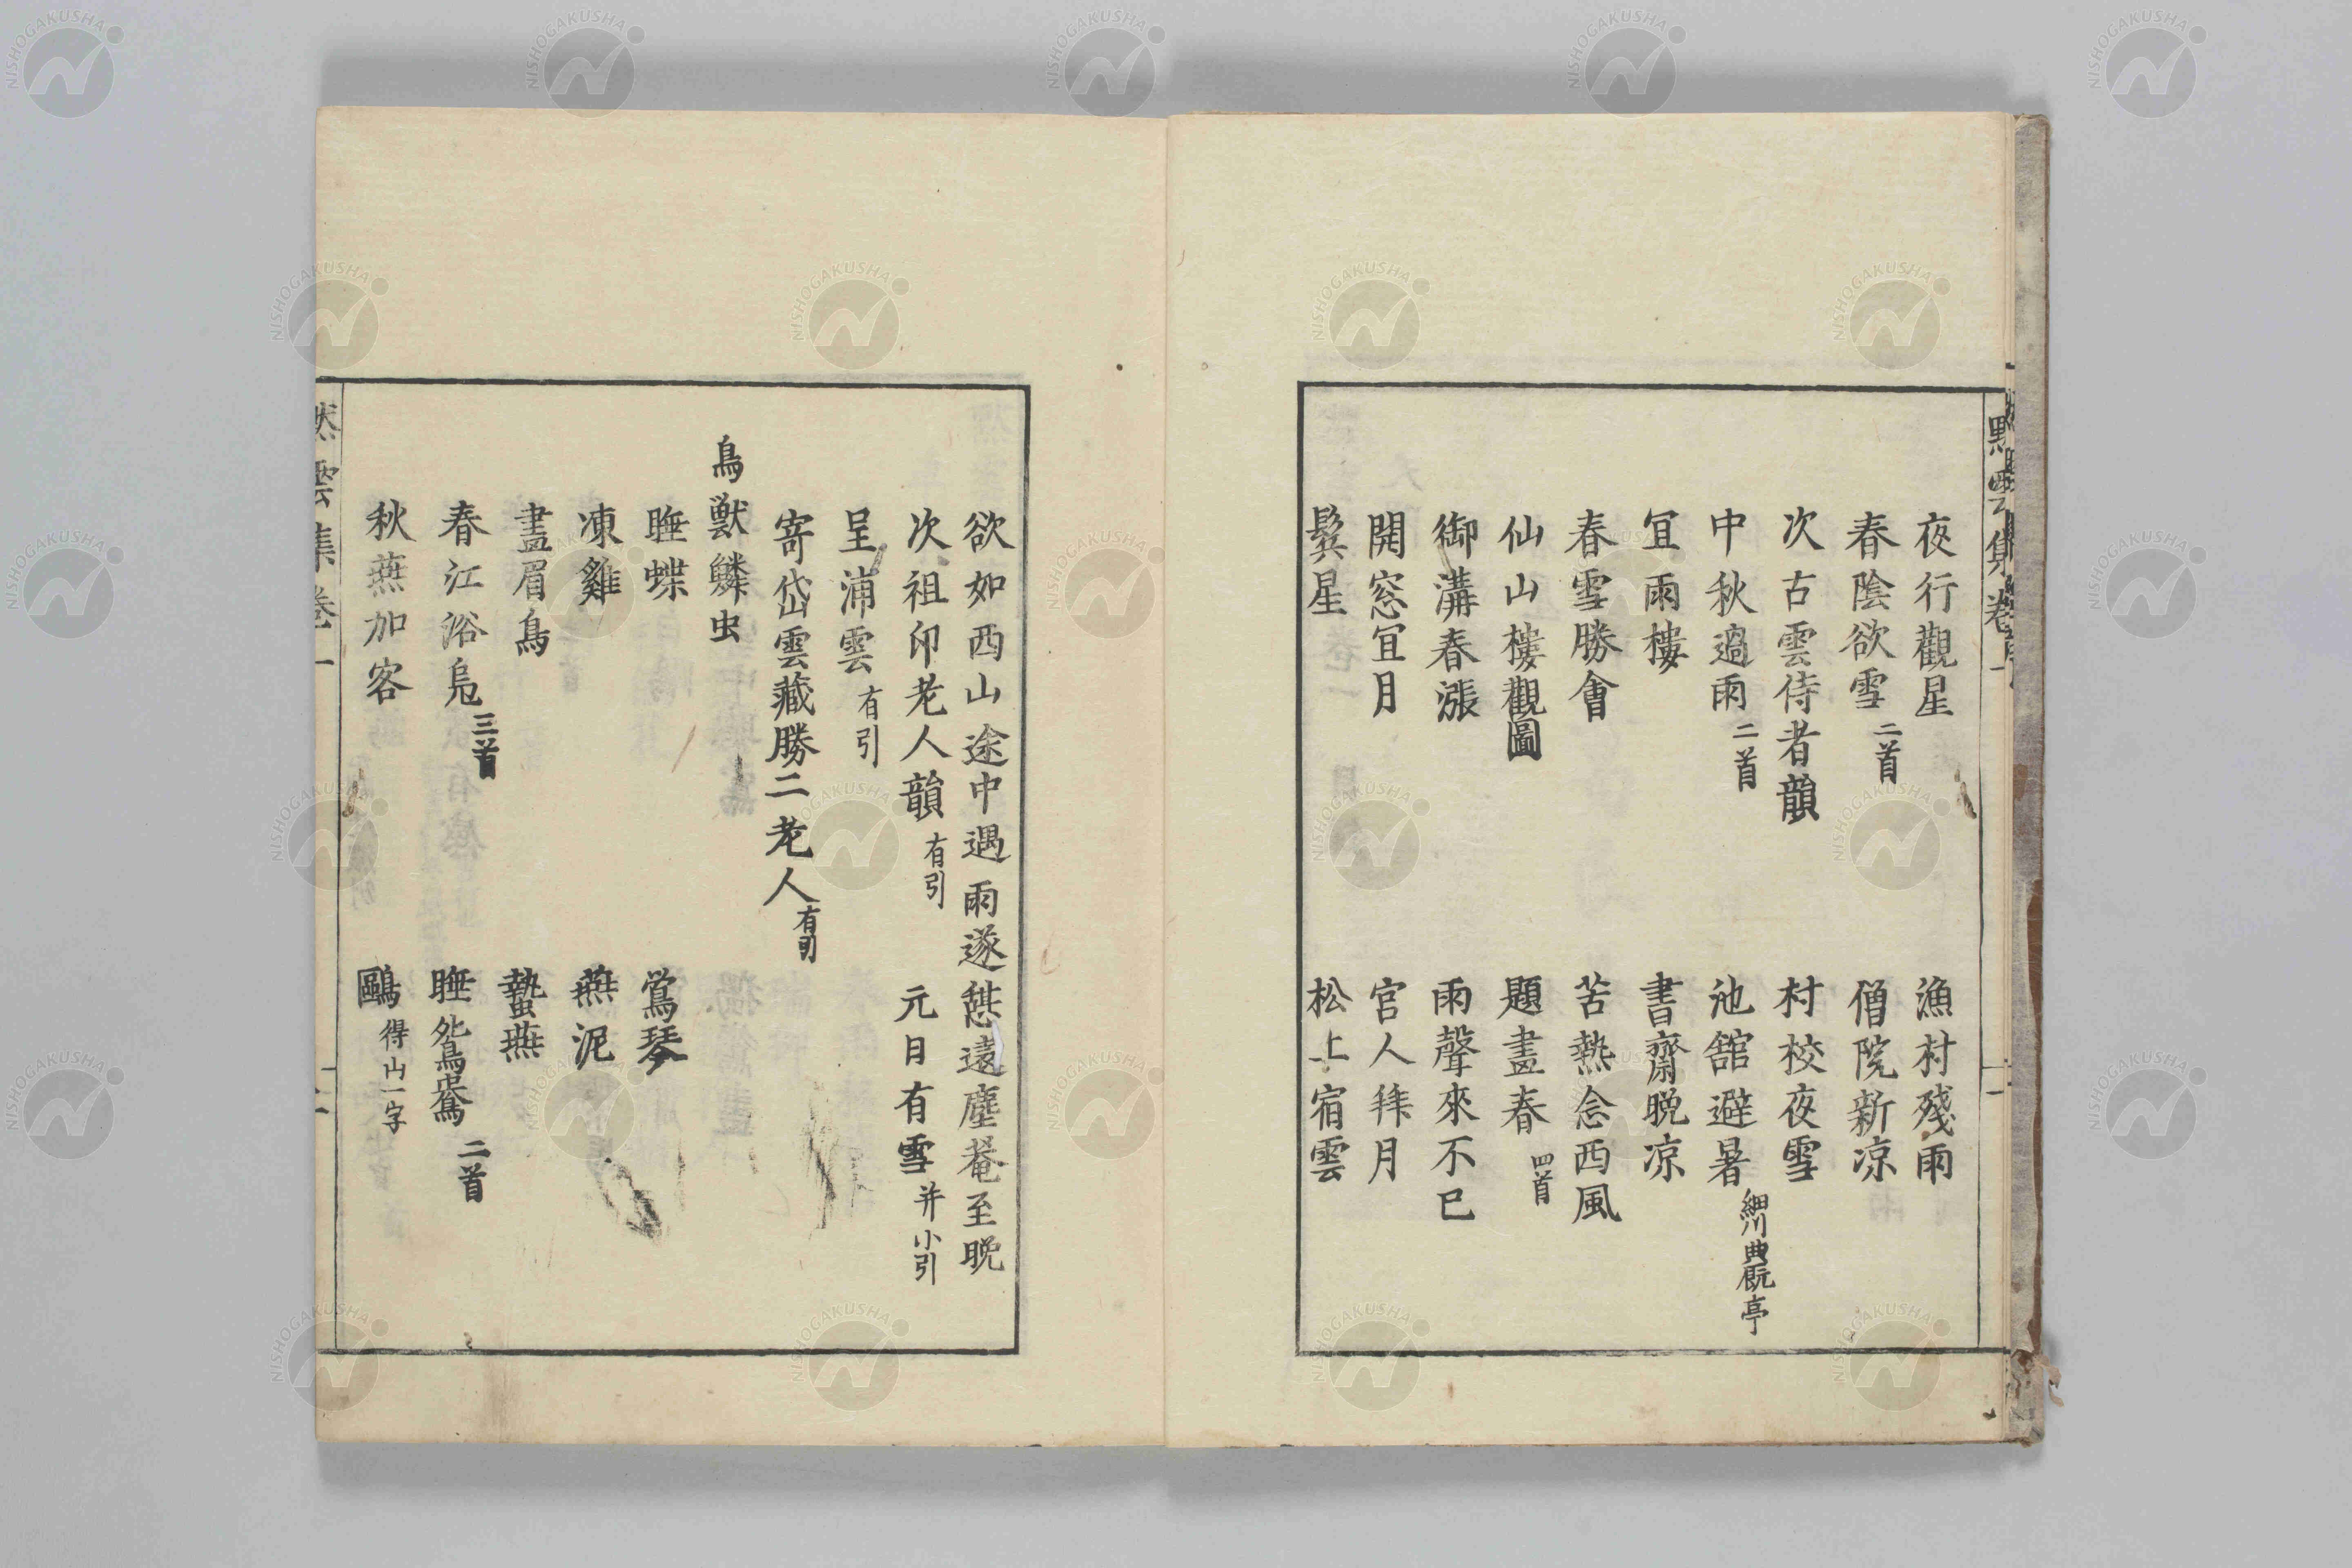 夜行觀星　漁村殘雨
春陰欲雪二首　僧院新凉
次古雲侍者韻　村校夜雪
中秋過雨二首　池舘避暑細川典厩亭
宜雨樓　書齋晚凉
春雪勝會　苦熱念西風
仙山樓觀圖　題畫春四首
御溝春漲　雨聲來不已
開窓宜月　官人拜月
鬓星　松上宿雲
欲如西山途中遇雨遂憇遠塵菴至晚
次祖印老人韻有引　元日有雪并小引
呈浦雲有引
寄岱雲藏勝二老人有引
鳥獸鱗虫
睡蝶　鶯琴
凍雞　燕泥
畫眉鳥　蟄燕
春江浴鳧三首　睡鴛鴦二首
秋燕加客　鷗得山一字
然雲集卷一
NISHOGAKUSHA